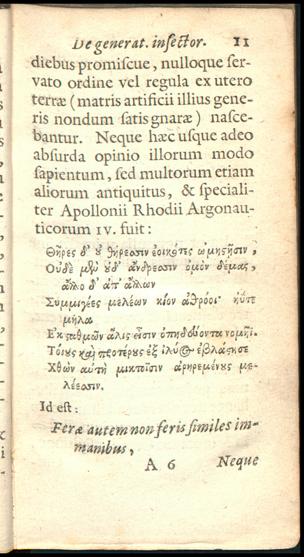 De generat. insector. 11
diebus promiscue, nulloque ser-
vato ordine vel regula ex utero
terræ (matris artificii illius gene-
ris nondum satis gnaræ) nasce-
bantur. Neque hæc usque adeo
absurda opinio illorum modo
sapientum, sed multorum etiam
aliorum antiquitus, & speciali-
ter Apollonii Rhodii Argonau-
ticorum IV. fuit:
Θῆρες δ' οὐ θήρεσσιν ἐοικότες ὠμηςῇσιν,
Οὐδὲ μὲν οὐδ' ἄνδρεσσιν ὁμὸν δέμας,
ἄλλο δ' ἀπ' ἄλλων
Συμμιγέες μελέων κίον ἀθρόοι· ἠΰτε
μῆλα
Ἐκ ςαθμῶν ἅλις εἶσιν ὀπηδεύοντα νομῆϊ.
Τοίους καὶ προτέρους ἐξ ἰλύος ἐβλάςησε
Χθὼν αὐτὴ μικτοῖσιν ἀρηρεμένους με-
λέεσσιν.
Id est:
Feræ autem non feris similes im-
manibus,
A 6 Neque